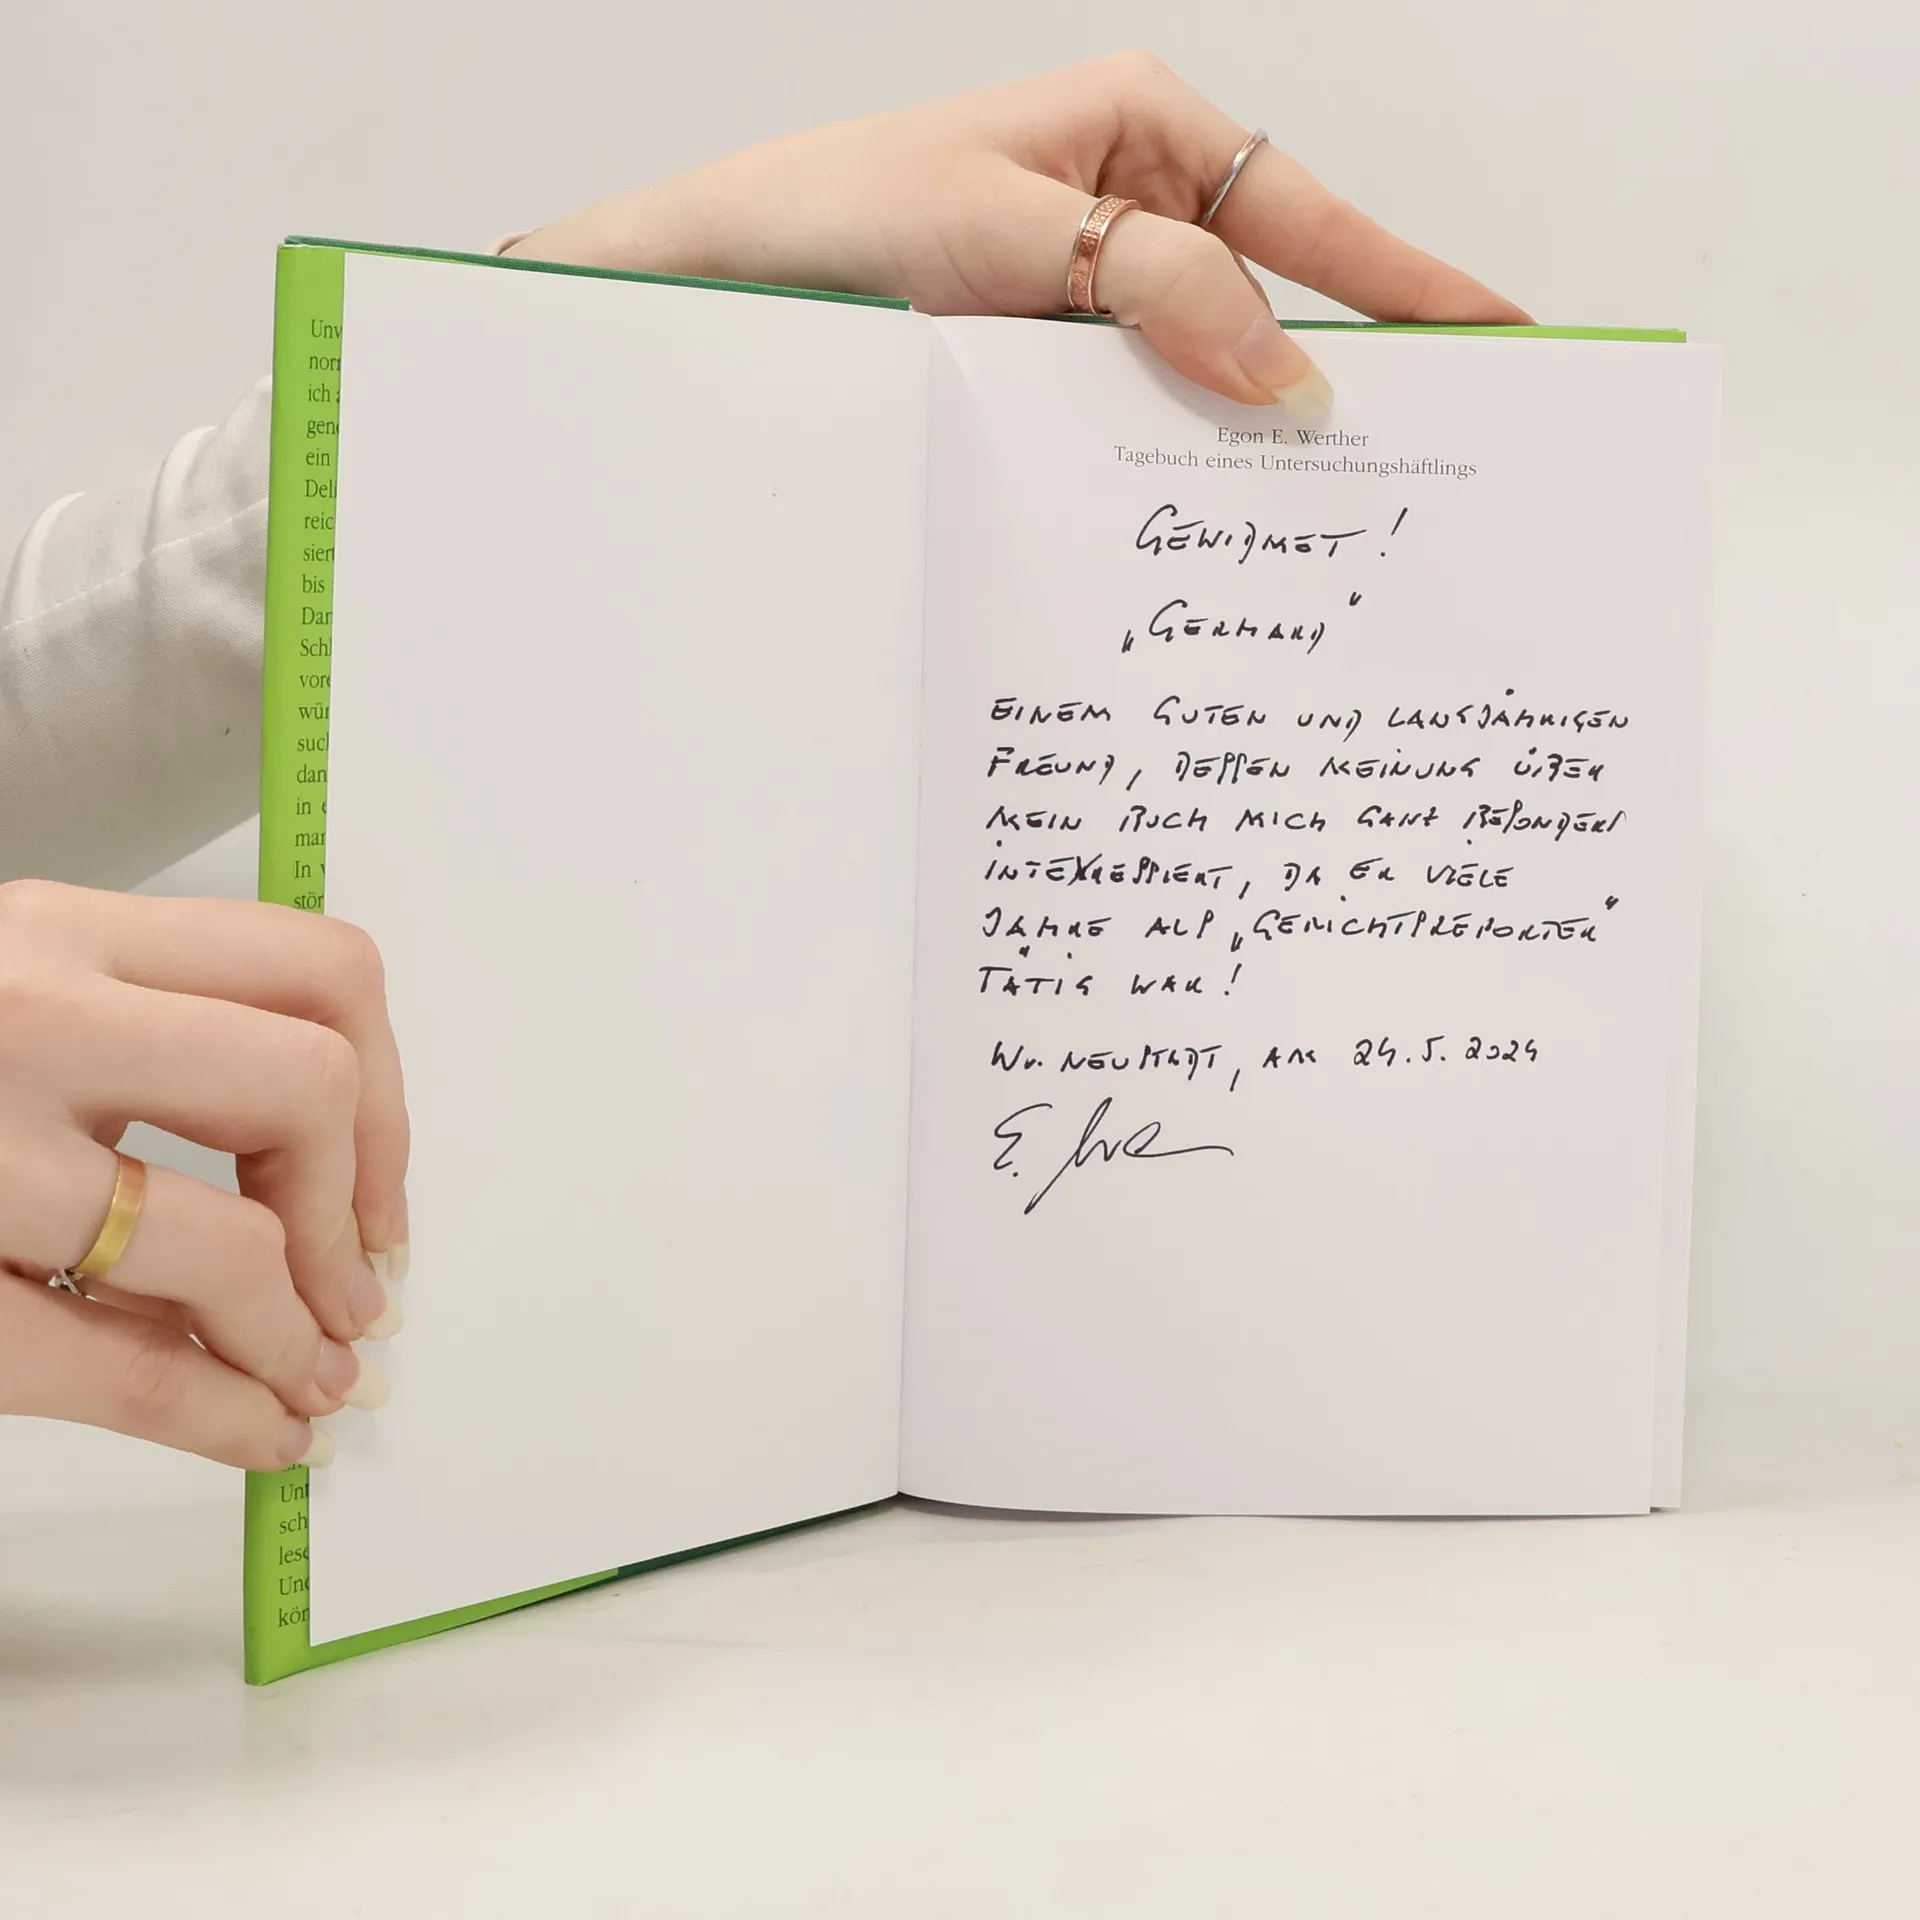 Unv
norr
ich
gen
ein
Deli
reic
siert
bis
Dar
Schl
vore
wür
sucl
dan
in
mar
In
stör
Unt
sch
lese
Und
kör
Egon E. Werther
Tagebuch eines Untersuchungshäftlings
GEWIDMET!
„GERHARD“
EINEM GUTEN UND LANGJÄHRIGEN
FREUND, DESSEN MEINUNG ÜBER
MEIN BUCH MICH GANZ BESONDERS
INTERRESSIERT, DA ER VIELE
JAHRE ALS „GERICHTSREPORTER“
TÄTIG WAR!
WR. NEUSTADT, AM 24.5.2024